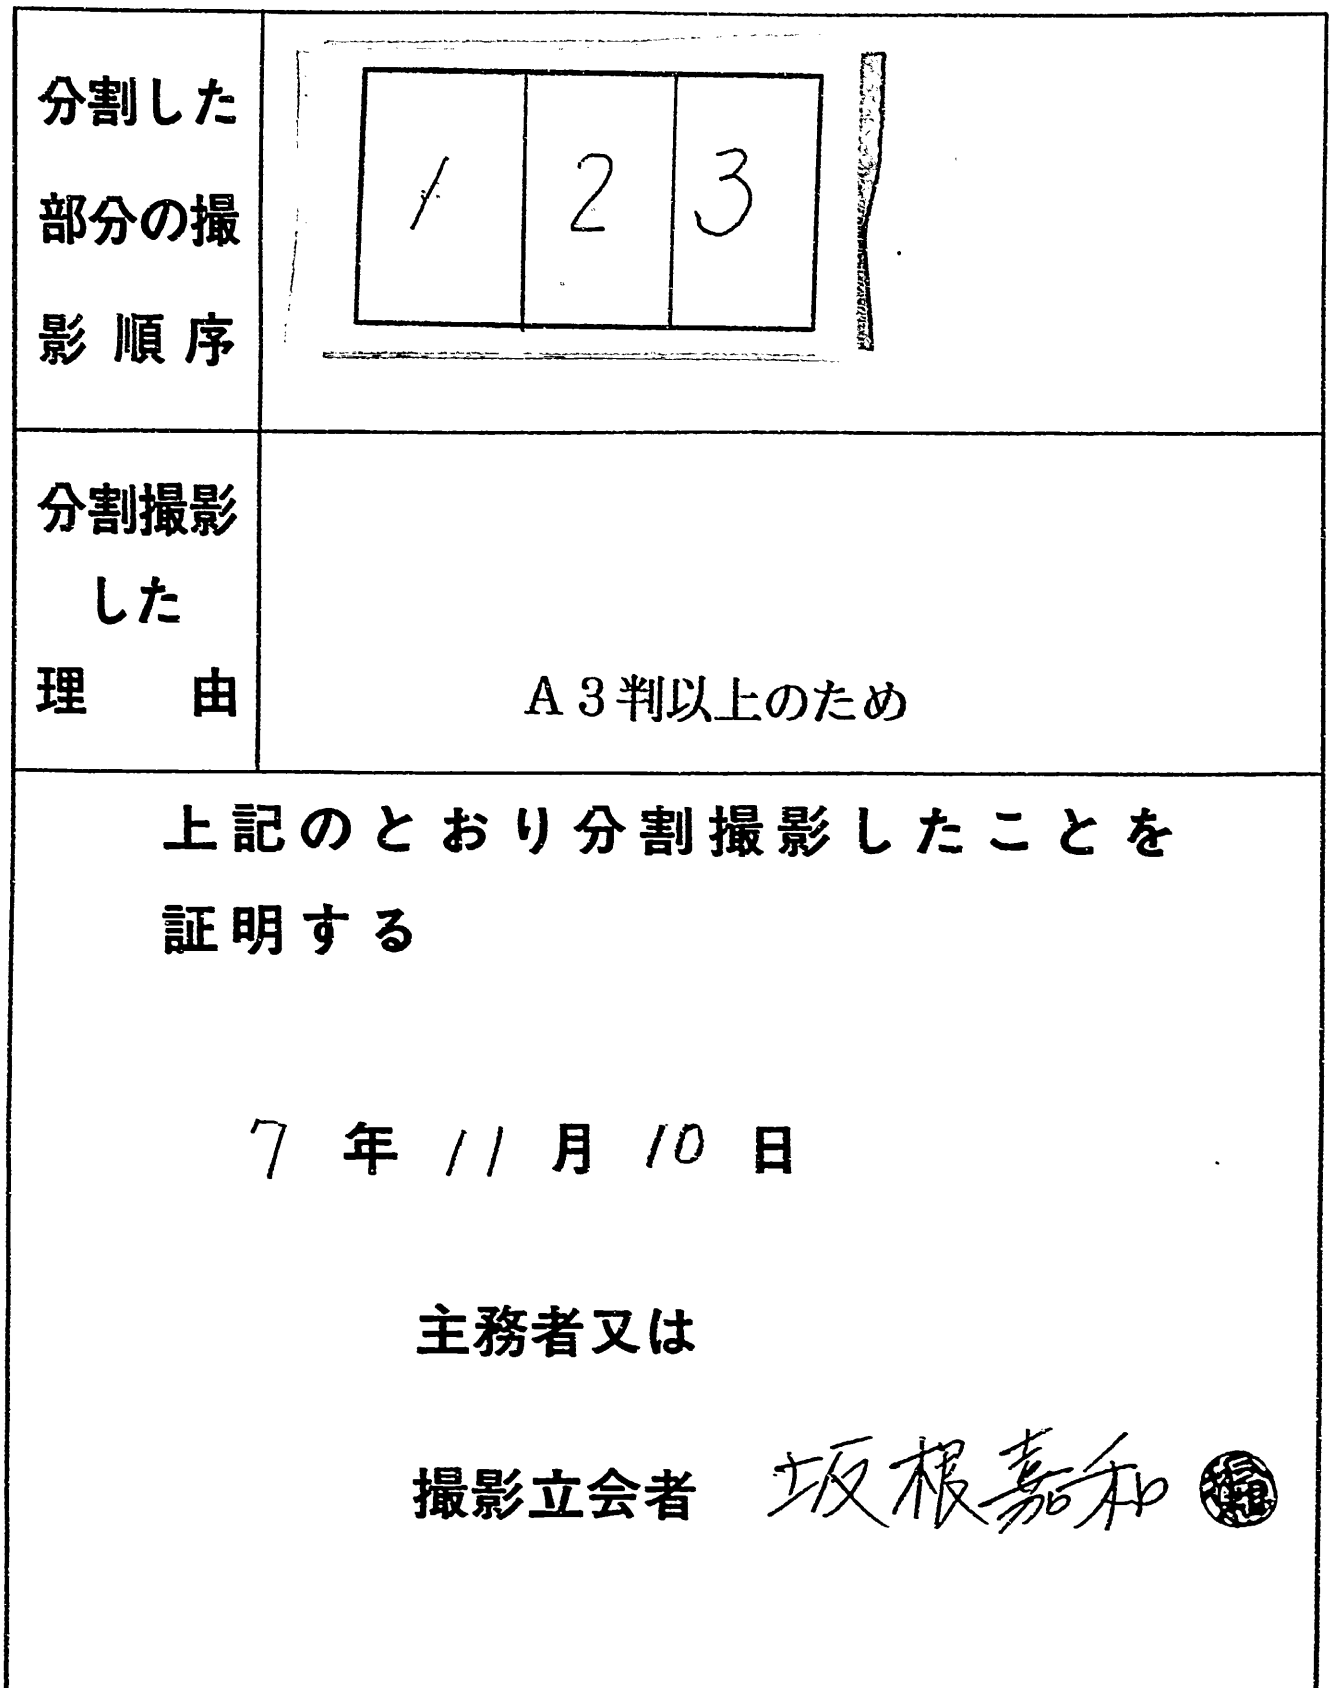 分割した
部分の撮
影順序
1 2 3
分割撮影
した
理由
A3判以上のため
上記のとおり分割撮影したことを
証明する
7年11月10日
主務者又は
撮影立会者 坂根嘉和